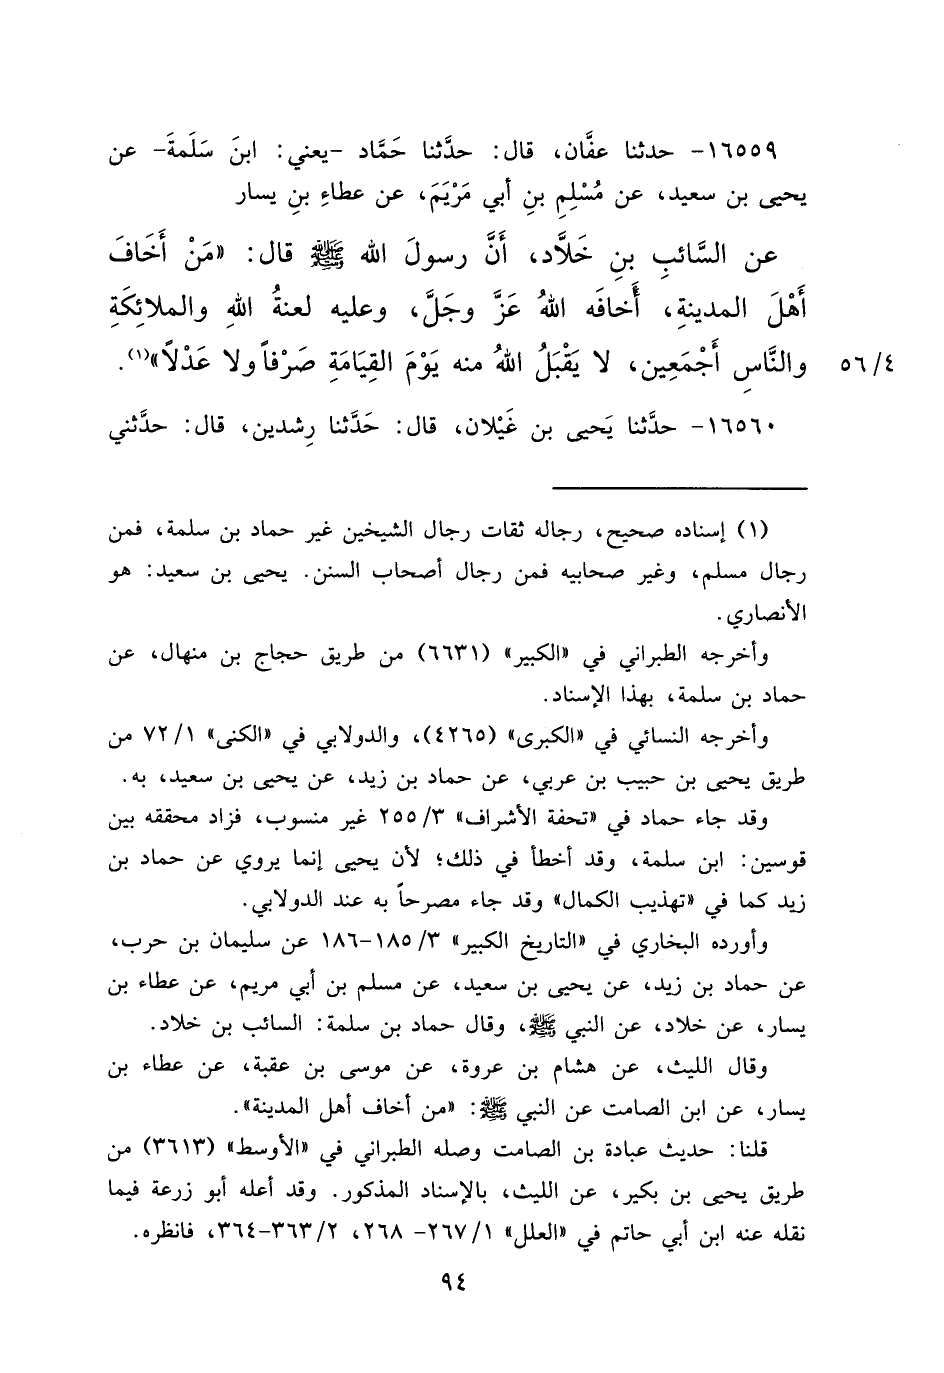 ١٦٥٥٩- حدثنا عفَّان، قال: حدَّثنا حَمَّاد -يعني: ابنَ سَلَمةَ- عن
يحيى بن سعيد، عن مُسْلِمِ بنِ أبي مَرْيَمَ، عن عطاءِ بنِ يسار
عن السَّائبِ بنِ خَلَّاد، أَنَّ رسولَ الله ﷺ قال: «مَنْ أَخَافَ
أَهْلَ المدينةِ، أَخافَه اللهُ عَزَّ وجَلَّ، وعليه لعنةُ اللهِ والملائِكَةِ
والنَّاسِ أَجْمَعِين، لا يَقْبَلُ اللهُ منه يَوْمَ القِيَامَةِ صَرْفاً ولا عَدْلاً»(١). ٥٦/٤
١٦٥٦٠- حدَّثنا يَحيى بن غَيْلان، قال: حَدَّثنا رِشدين، قال: حدَّثني
(١) إسناده صحيح، رجاله ثقات رجال الشيخين غير حماد بن سلمة، فمن
رجال مسلم، وغير صحابيه فمن رجال أصحاب السنن. يحيى بن سعيد: هو
الأنصاري.
وأخرجه الطبراني في «الكبير» (٦٦٣١) من طريق حجاج بن منهال، عن
حماد بن سلمة، بهذا الإسناد.
وأخرجه النسائي في «الكبرى» (٤٢٦٥)، والدولابي في «الكنى» ٧٢/١ من
طريق يحيى بن حبيب بن عربي، عن حماد بن زيد، عن يحيى بن سعيد، به.
وقد جاء حماد في «تحفة الأشراف» ٢٥٥/٣ غير منسوب، فزاد محققه بين
قوسين: ابن سلمة، وقد أخطأ في ذلك؛ لأن يحيى إنما يروي عن حماد بن
زيد كما في «تهذيب الكمال» وقد جاء مصرحاً به عند الدولابي.
وأورده البخاري في «التاريخ الكبير» ١٨٥/٣-١٨٦ عن سليمان بن حرب،
عن حماد بن زيد، عن يحيى بن سعيد، عن مسلم بن أبي مريم، عن عطاء بن
يسار، عن خلاد، عن النبي ﷺ، وقال حماد بن سلمة: السائب بن خلاد.
وقال الليث، عن هشام بن عروة، عن موسى بن عقبة، عن عطاء بن
يسار، عن ابن الصامت عن النبي ﷺ: «من أخاف أهل المدينة».
قلنا: حديث عبادة بن الصامت وصله الطبراني في «الأوسط» (٣٦١٣) من
طريق يحيى بن بكير، عن الليث، بالإسناد المذكور. وقد أعله أبو زرعة فيما
نقله عنه ابن أبي حاتم في «العلل» ٢٦٧/١- ٢٦٨، ٣٦٣/٢-٣٦٤، فانظره.
٩٤